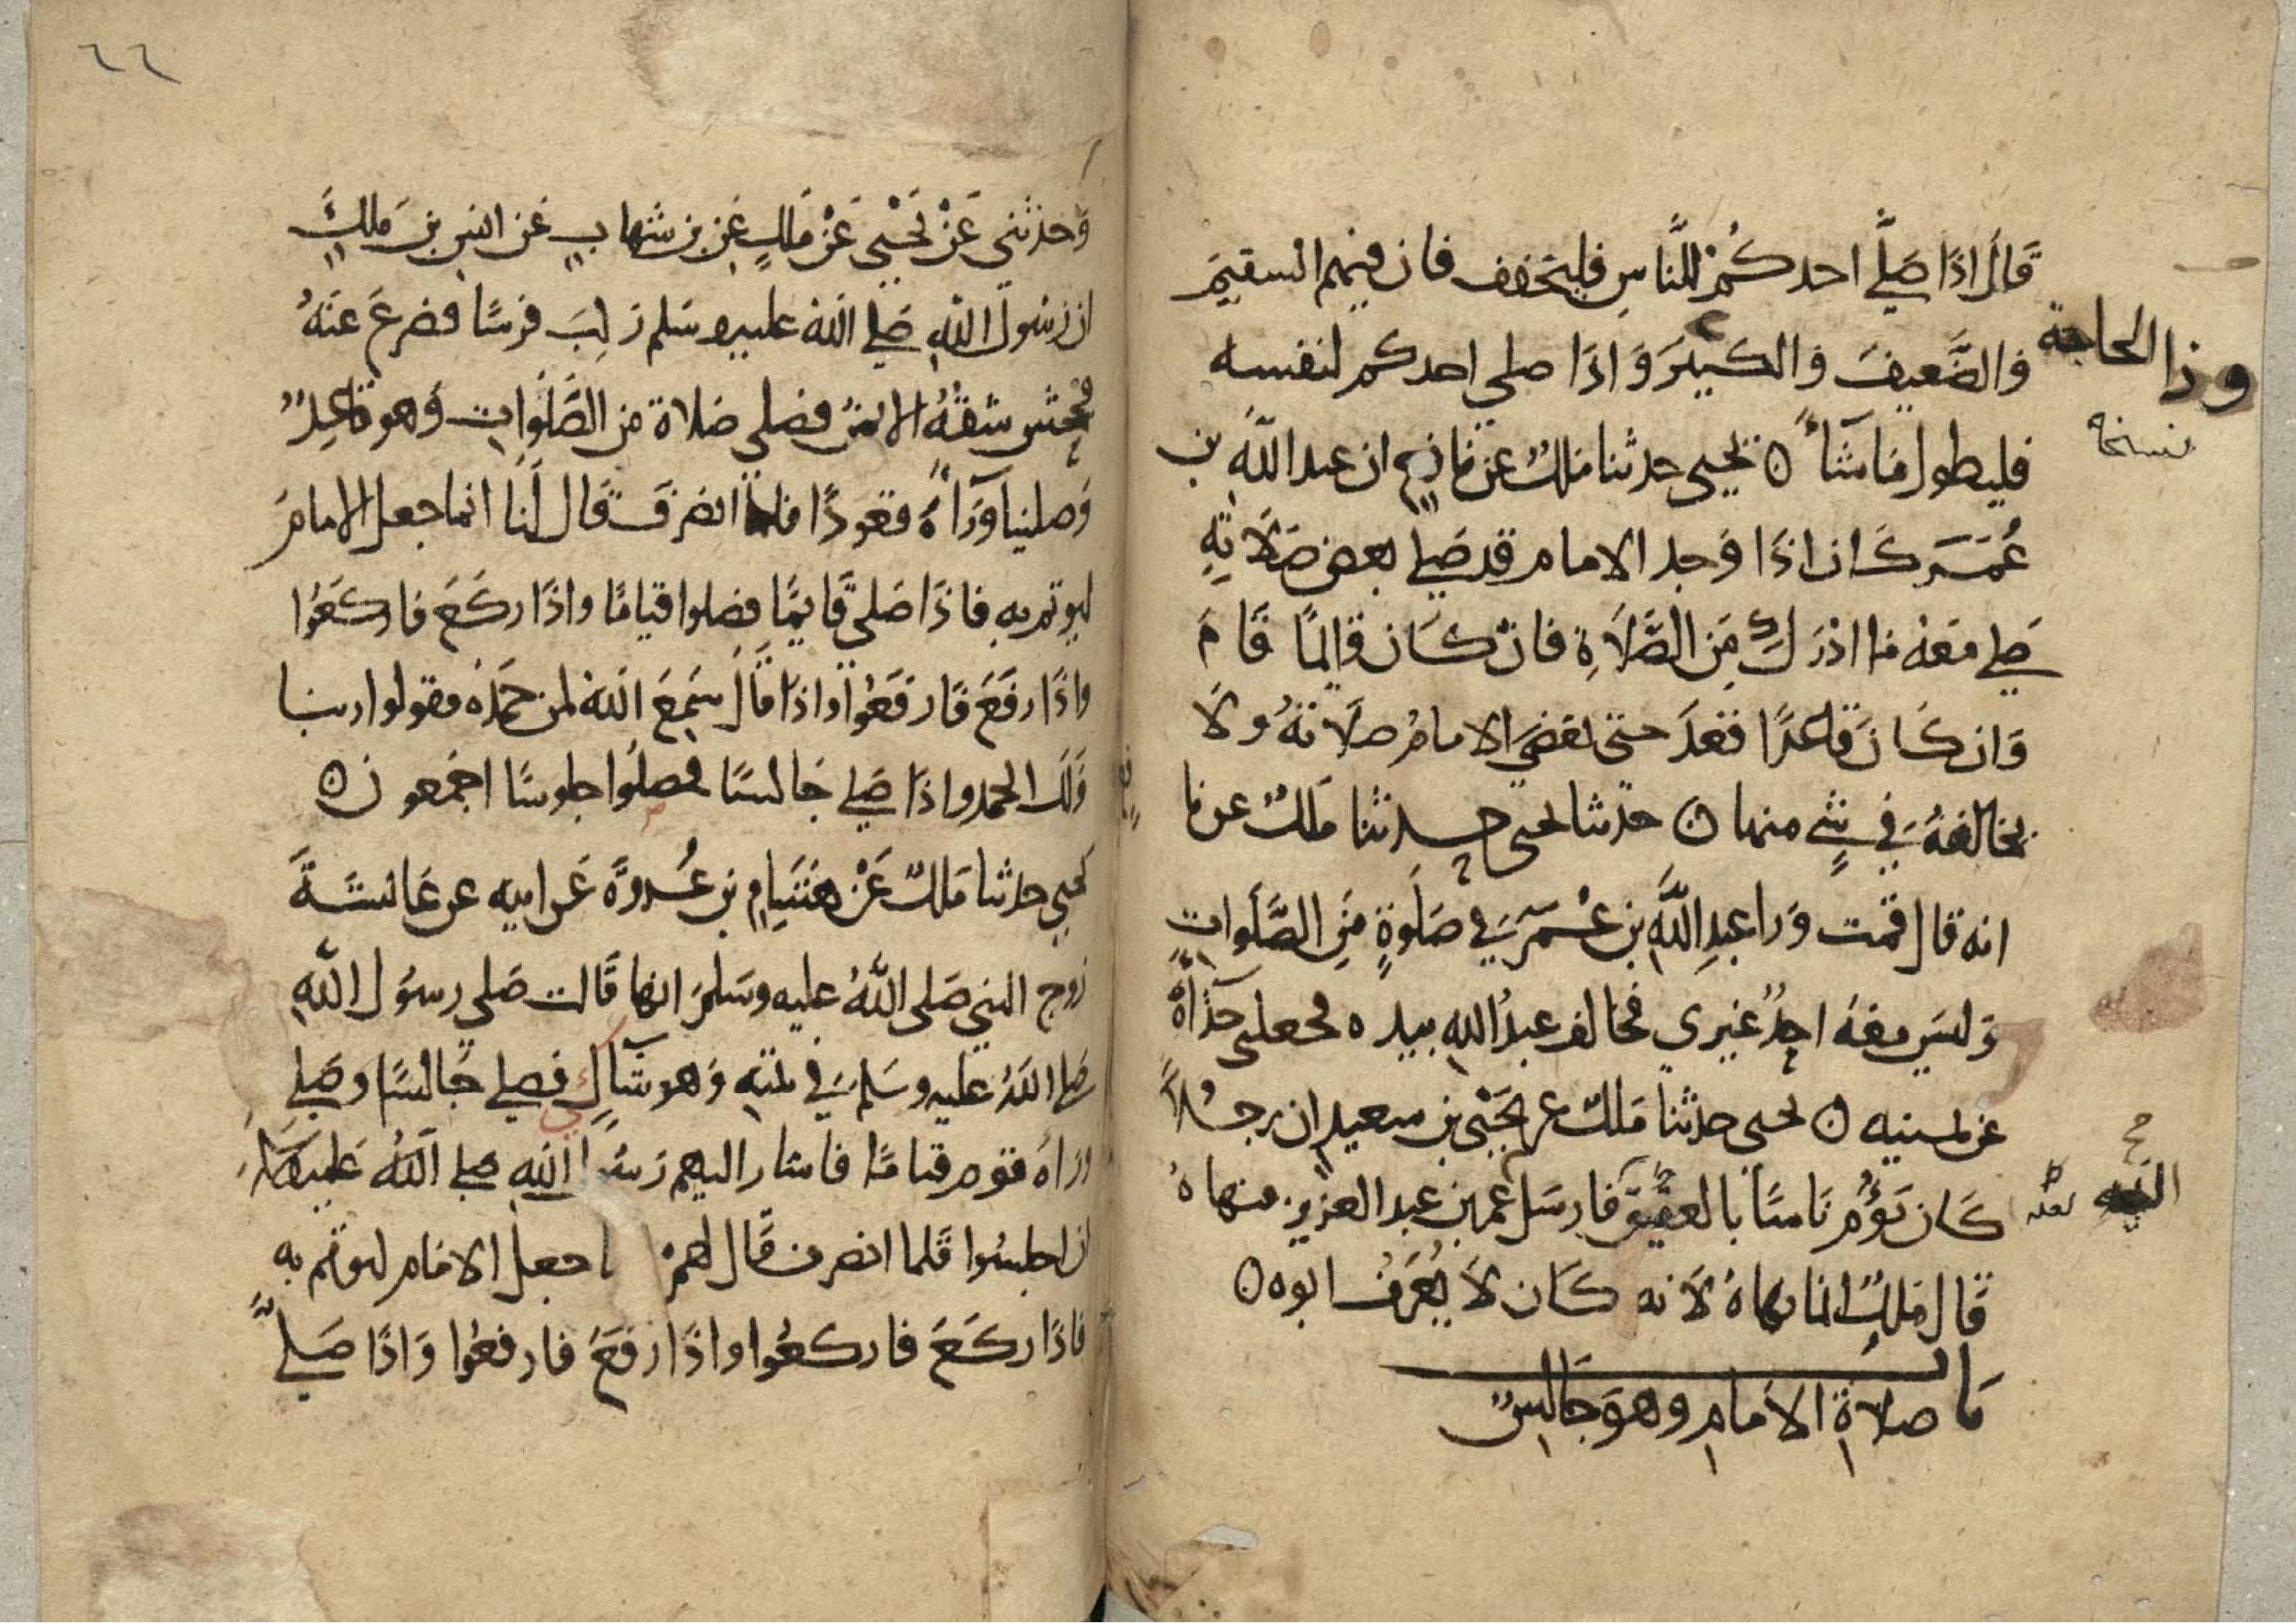 قَالَ اذَا صَلَّى احدكُمْ للنَّاسِ فليخفف فان فيهم السقيمَ
وَالضَّعيفَ وَالكبيرَ وَاذَا صلى احدكم لنفسه
وذا الحاجة
نسخة
فليطول مَا شَآءَ ۝ يحيى حدثنا مَلكٌ عن نافِعٍ ان عبد اللَّهِ بن
عُمَرَ كَان اذَا وَجد الامام قد صَلى بعض صَلَاتِهِ
صَلى مَعَهُ مَا ادْرَكَ مِنَ الصَّلَاةِ فان كَان قَايمًا قَامَ
وَان كَانَ قَاعدًا قعَدَ حتى يقضيَ الامامُ صلَاتهُ ولَا
يخالفهُ في شيءٍ منها ۝ حدثنا يحيى حدثنا مَلكٌ عن نافع
انه قال قمت وَرا عبدِ اللَّهِ بن عُمَرَ في صَلوةٍ مِنَ الصَّلَواتِ
وَليسَ معَهُ احدٌ غيري فخالف عبدُ اللهِ بيده فجعلني حذَآهُ
عن يمينه ۝ يحيى حدثنا مَلكٌ عن يَحْيى بن سعيدٍ ان رجُلًا
كَان يَؤُمُّ نَاسًا بالعقيق فارسَل عُمر بن عبد العزيز فنهاهُ
صح
اليه
لعله
قَال مَلكٌ انما نهاهُ لَانه كَان لَا يُعْرَفُ ابوه ۝
مَا
صلاةِ الامامِ وهوَ جَالسٌ
٦٦
وَحدثني عَنْ يَحْيى عَنْ مَلكٍ عَن بن شهابٍ عَن انسِ بن مَلكٍ
ان رَسُولَ اللهِ صَلى اللهُ عليه وسَلم رَكِبَ فرَسًا فصُرعَ عَنهُ
فجُحش شقهُ الايمنُ فصَلى صَلاةً مِن الصَّلَواتِ وَهو قَاعِدٌ
وَصلينا وَرَآءهُ قعودًا فلما انصَرَفَ قَال لَنَا انما جعل الامامُ
ليوتم بهِ فاذَا صَلى قَايمًا فصلوا قيامًا واذَا ركَعَ فاركَعُوا
واذَا رفَعَ فَارفَعُوا واذَا قَالَ سَمِعَ اللهُ لمن حَمدَه فقولوا ربنا
وَلكَ الحمد واذَا صَلى جَالسًا فصلُوا جلوسًا اجْمعون ۝
يحيى حدثنا مَلكٌ عَنْ هشَامِ بن عُروةَ عَن ابيه عن عَائشَةَ
زوج النبي صَلى اللَّهُ عليه وسَلمَ انها قَالت صَلى رسوُل اللهِ
صَلى اللهُ عليه وسَلم في بيته وَهو شَاكٍ فصلى جَالسًا وصَلى
ورَاهُ قوم قيامًا فاشار اليهم رَسُول اللهِ صلى اللهُ عَليه وسلم
ان اجلسُوا فَلما انصرف قَال لهمْ جعل الامَام ليوتم به
فاذَا ركَعَ فاركعُوا واذَا رفَعَ فارفعُوا وَاذَا صَلى